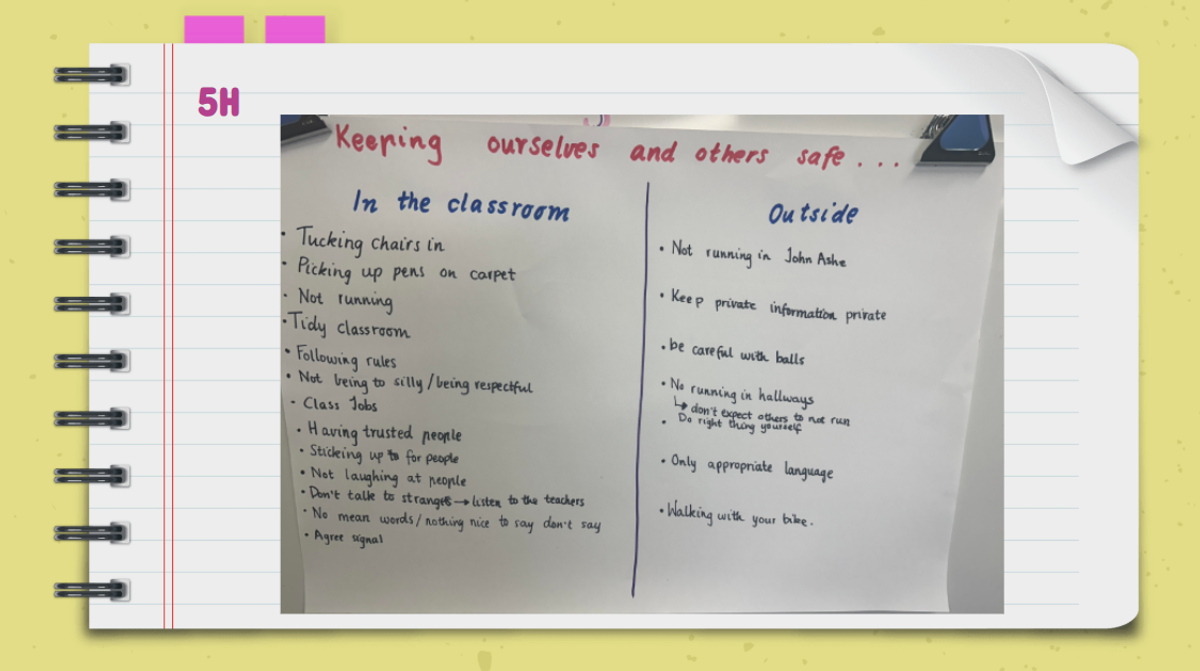 5H
Keeping ourselves and others safe...
In the classroom
• Tucking chairs in
• Picking up pens on carpet
• Not running
• Tidy classroom
• Following rules
• Not being to silly / being respectful
• Class Jobs
• Having trusted people
• Sticking up to for people
• Not laughing at people
• Don't talk to strangers → listen to the teachers
• No mean words / nothing nice to say don't say
• Agree signal
Outside
• Not running in John Ashe
• Keep private information private
• be careful with balls
• No running in hallways
↳ don't expect others to not run
• Do right thing yourself
• Only appropriate language
• Walking with your bike.